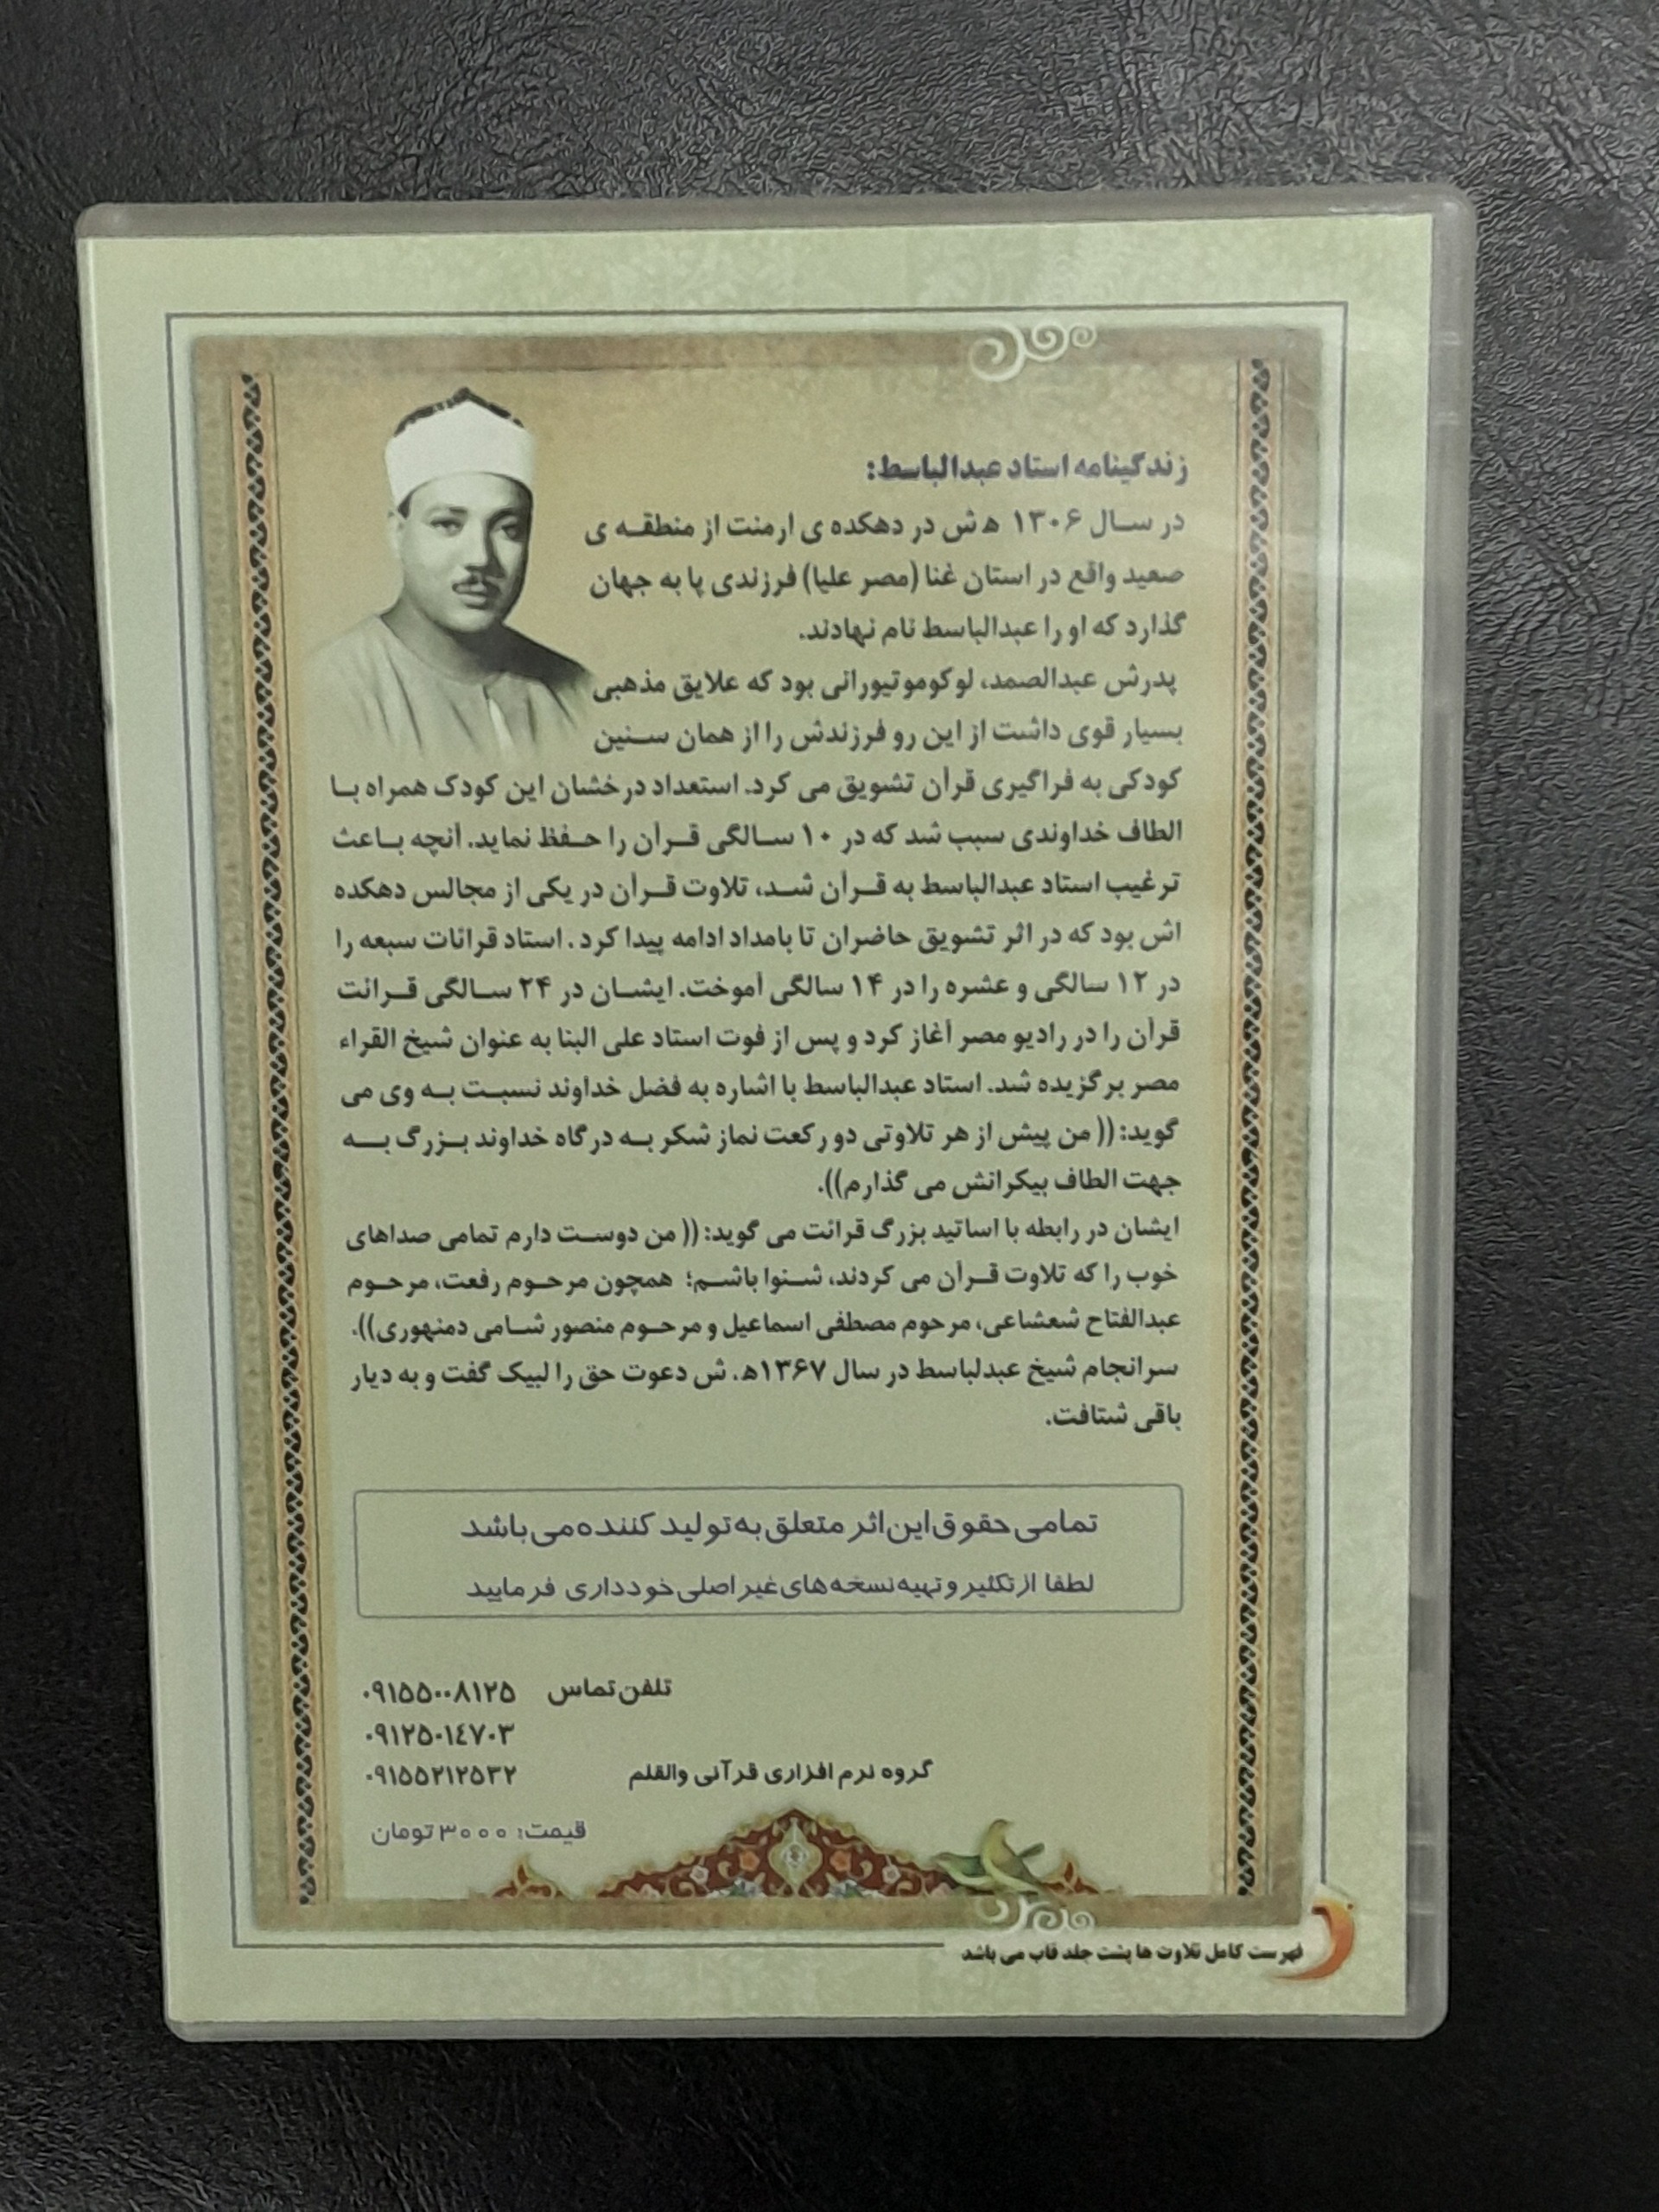 زندگینامه استاد عبدالباسط:
در سال ۱۳۰۶ ه ش در دهکده ی ارمنت از منطقه ی
صعید واقع در استان غنا (مصر علیا) فرزندی پا به جهان
گذارد که او را عبدالباسط نام نهادند.
پدرش عبدالصمد، لوکوموتیورانی بود که علایق مذهبی
بسیار قوی داشت از این رو فرزندش را از همان سنین
کودکی به فراگیری قرآن تشویق می کرد. استعداد درخشان این کودک همراه با
الطاف خداوندی سبب شد که در ۱۰ سالگی قرآن را حفظ نماید. آنچه باعث
ترغیب استاد عبدالباسط به قرآن شد، تلاوت قرآن در یکی از مجالس دهکده
اش بود که در اثر تشویق حاضران تا بامداد ادامه پیدا کرد . استاد قرائات سبعه را
در ۱۲ سالگی و عشره را در ۱۴ سالگی آموخت. ایشان در ۲۴ سالگی قرائت
قرآن را در رادیو مصر آغاز کرد و پس از فوت استاد علی البنا به عنوان شیخ القراء
مصر برگزیده شد. استاد عبدالباسط با اشاره به فضل خداوند نسبت به وی می
گوید: (( من پیش از هر تلاوتی دو رکعت نماز شکر به درگاه خداوند بزرگ به
جهت الطاف بیکرانش می گذارم)).
ایشان در رابطه با اساتید بزرگ قرائت می گوید: (( من دوست دارم تمامی صداهای
خوب را که تلاوت قرآن می کردند، شنوا باشم؛ همچون مرحوم رفعت، مرحوم
عبدالفتاح شعشاعی، مرحوم مصطفی اسماعیل و مرحوم منصور شامی دمنهوری)).
سرانجام شیخ عبدلباسط در سال ۱۳۶۷ه. ش دعوت حق را لبیک گفت و به دیار
باقی شتافت.
تمامی حقوق این اثر متعلق به تولید کننده می باشد
لطفا از تکثیر و تهیه نسخه های غیر اصلی خودداری فرمایید
تلفن تماس ۰۹۱۵۵۰۰۸۱۲۵
۰۹۱۲۵۰۱٤۷۰۳
گروه نرم افزاری قرآنی والقلم ۰۹۱۵۵۲۱۲۵۳۲
قیمت: ۳۰۰۰ تومان
فهرست کامل تلاوت ها پشت جلد قاب می باشد